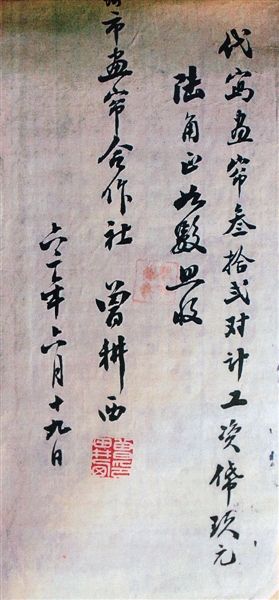 代写画帘叁拾弍对计工资币玖元
陆角正如数照收
州市画帘合作社 曾耕西
六二年六月十九日